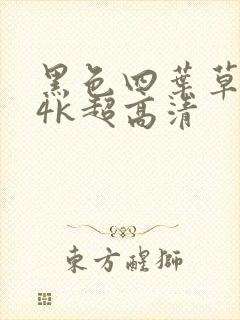 黑色四葉草
4K超高清
東方醒獅